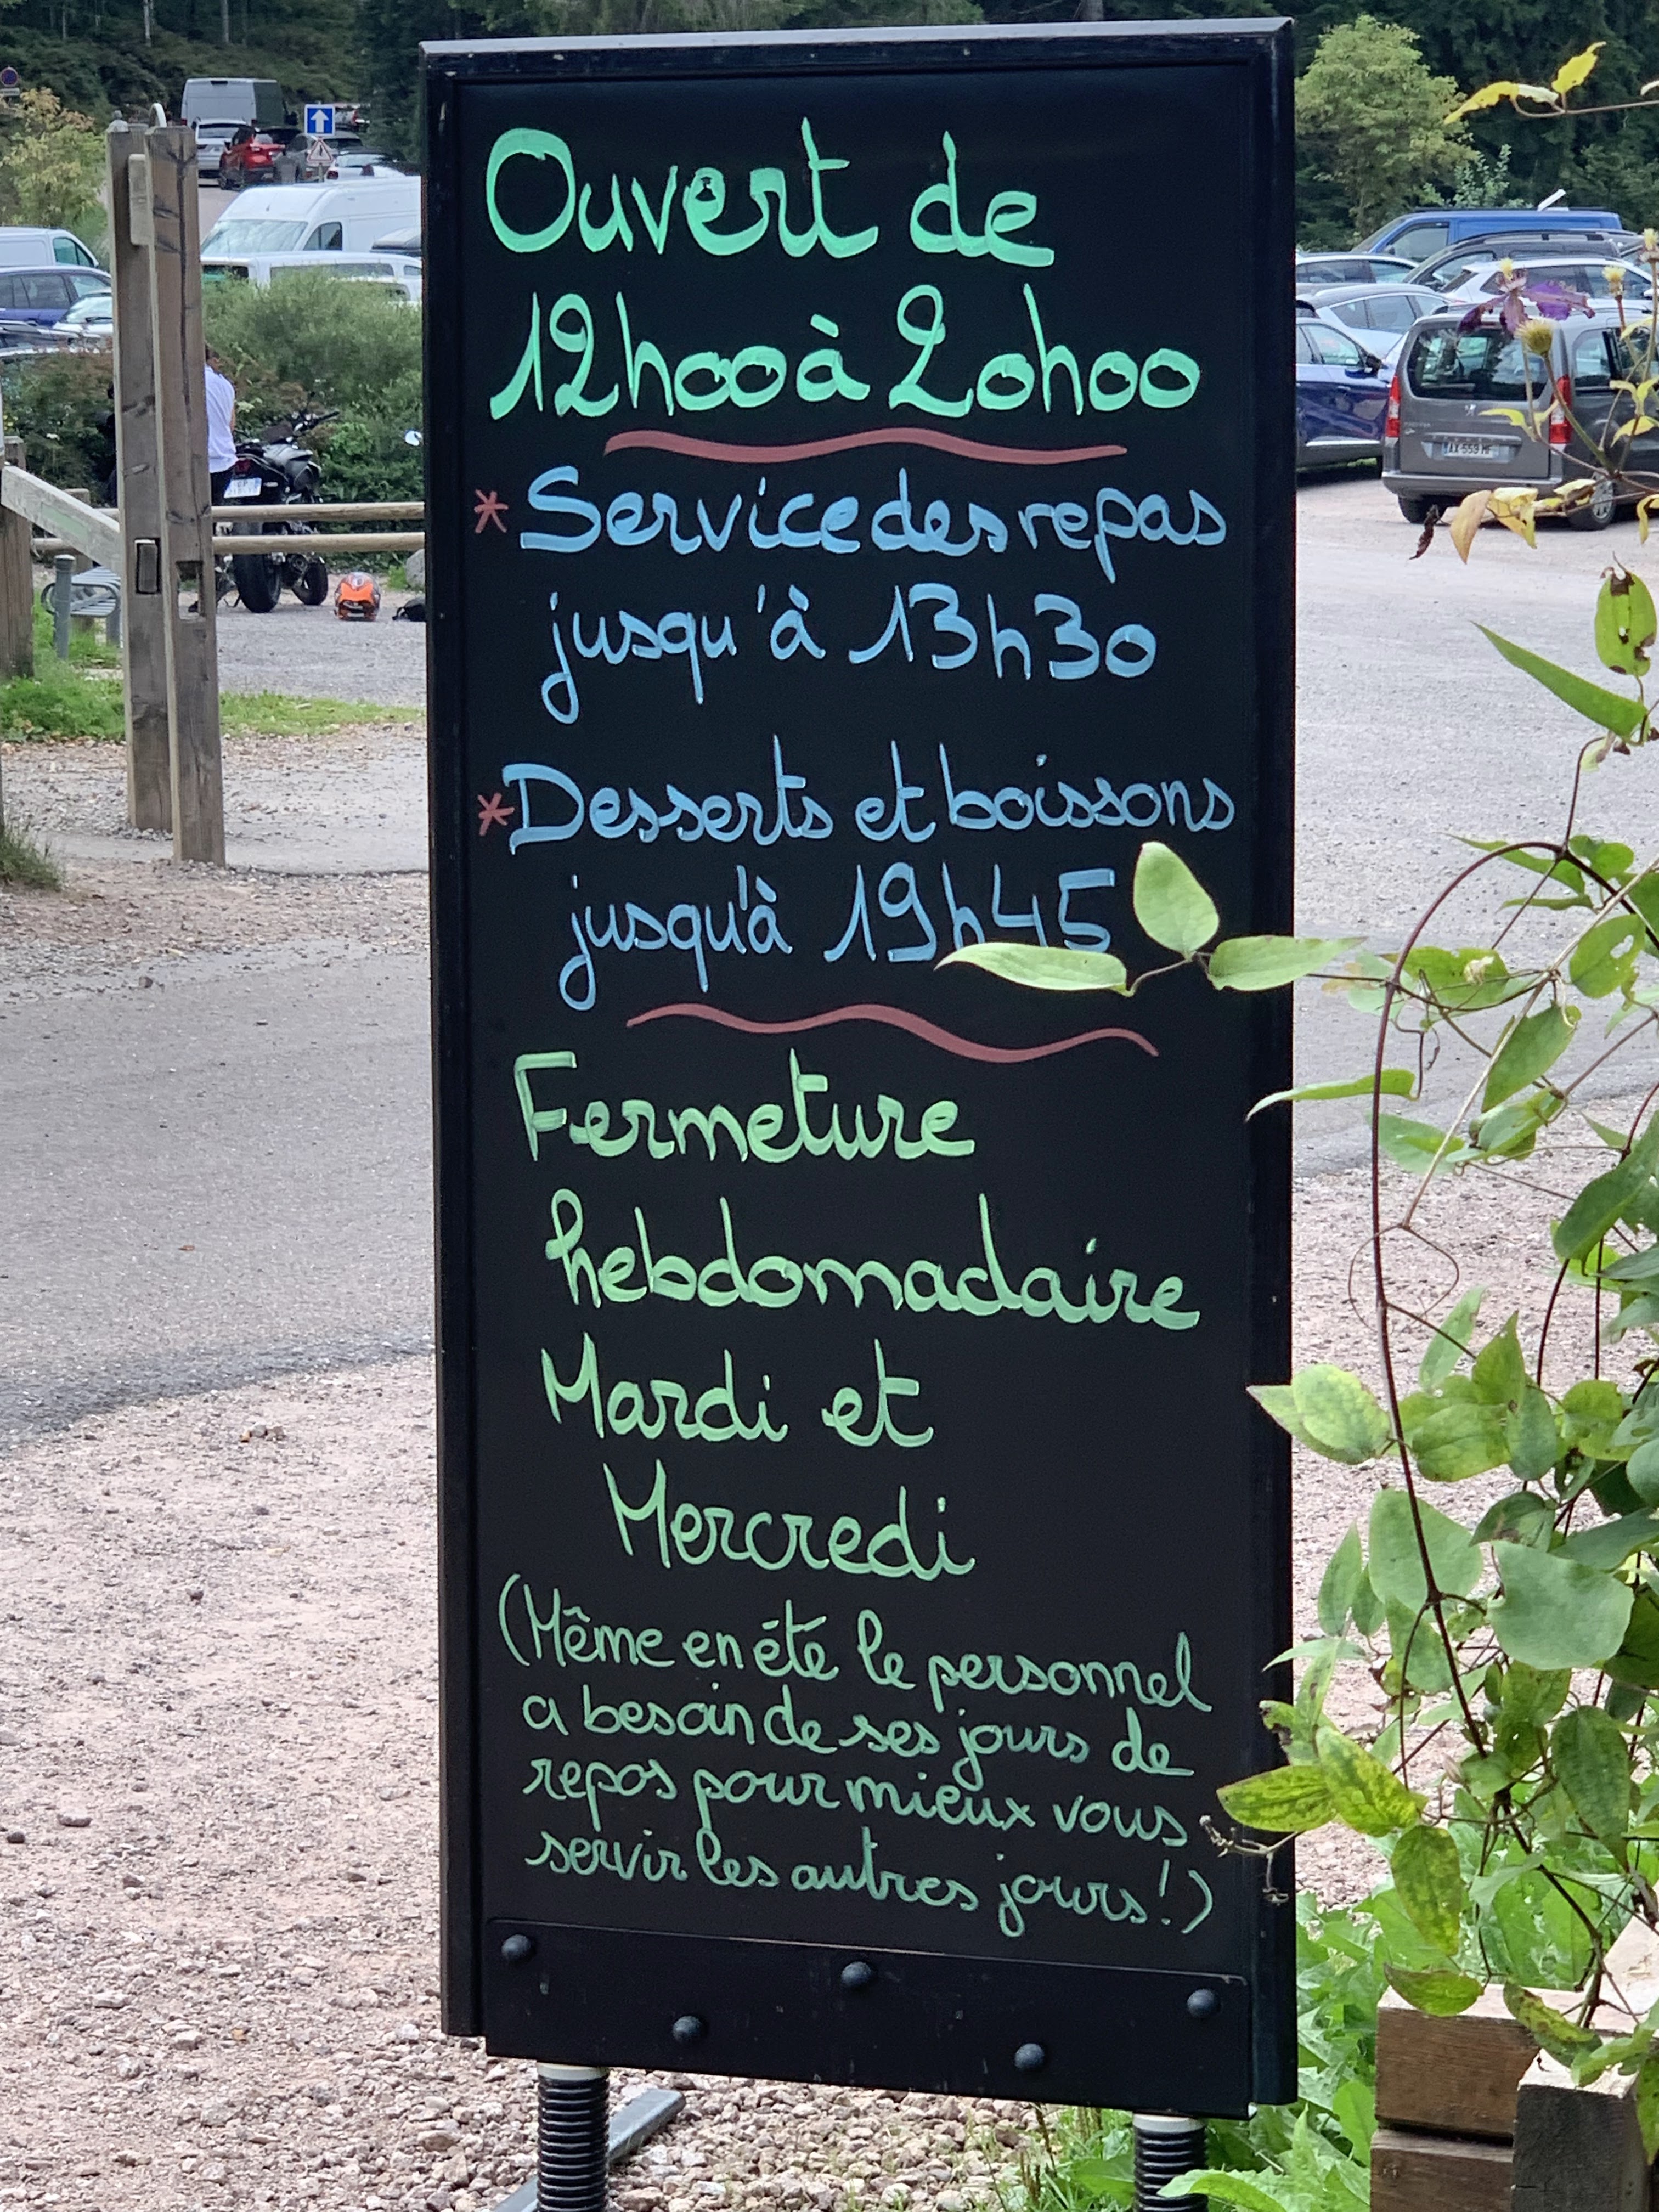 Ouvert de
12h00 à 20h00
* Service des repas
jusqu'à 13h30
* Desserts et boissons
jusqu'à 19h45
Fermeture
hebdomadaire
Mardi et
Mercredi
(Même en été le personnel
a besoin de ses jours de
repos pour mieux vous
servir les autres jours!)
AX-559-MF